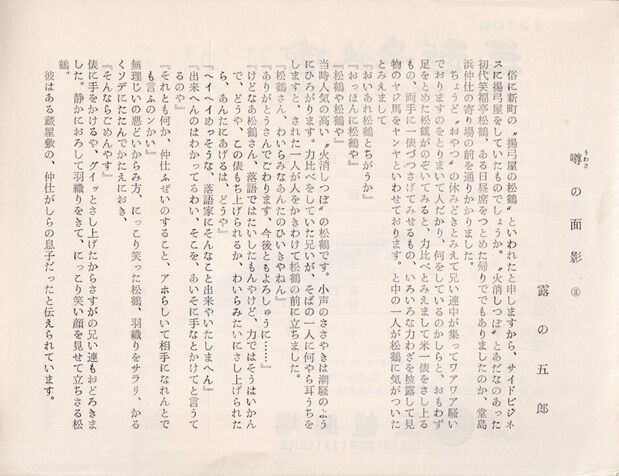 噂の面影 ③
うわさ
露の五郎
俗に新町の〝揚弓屋の松鶴〟といわれたと申しますから、サイドビジネ
スに揚弓屋をしていたものでしょうか。〝火消しつぼ〟とあだなのあった
初代笑福亭松鶴、ある日昼席をつとめた帰りででもありましたのか、堂島
浜仲仕の寄り場の前を通りかかりました。
ちょうど〝おやつ〟の休みどきとみえて兄い連中が集ってワアワア騒い
でおりますのをとりまいて人だかり、何をしているのかしらと、おもわず
足をとめた松鶴がのぞいてみると、力比べとみえまして米一俵をさし上る
もの、両手に一俵づつさげてみせるもの、いろいろな力わざを披露して見
物のヤジ馬をヤンヤといわせております。と中の一人が松鶴に気がついた
とみえまして
『おいあれ松鶴とちがうか』
『おっほんに松鶴や』
『松鶴や松鶴や』
当時人気の高い〝火消しつぼ〟の松鶴です。小声のささやきは潮騒のよう
にひろがります。力比べをしていた兄いが、そばの一人に何やら耳うちを
しますと、された一人が人をかきわけて松鶴の前に立ちました。
『松鶴さん、わいらみなあんたのひいきやねん』
『ありがとうさんでごわります、今後ともよろしゅうに……』
『けどなあ松鶴さん、落語ではたいしたもんやけど、力ではそうはいかん
で、どうや、この俵もち上げられるか、わいらみたいにさし上げられた
ら、あんたにあげるは、どうや』
『ヘイヘイめっそうな、落語家にそんなこと出来やいたしまへん』
『出来へんのはわかってるわい、そこを、あいそに手なとかけてと言うて
るのや』
『それとも何か、仲仕ふぜいのすること、アホらしいて相手になれんとで
も言うのンかい』
無理じいの悪どいからみ方、にっこり笑った松鶴、羽織りをサラリ、かる
くソデにたたんでかたえにおき、
『そんならごめんやす』
俵に手をかけるや、グイッとさし上げたからさすがの兄い連もおどろきま
した。静かにおろして羽織りをきて、にっこり笑い顔を見せて立ちさる松
鶴。
彼はある蔵屋敷の、仲仕がしらの息子だったと伝えられています。